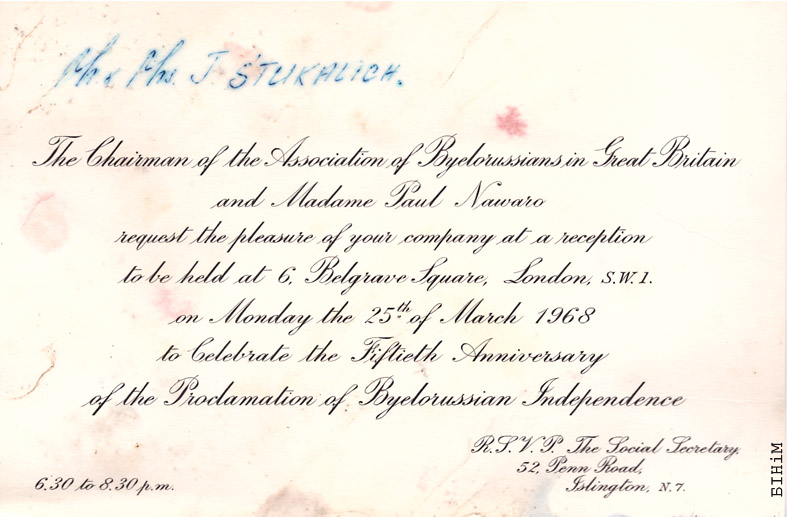 Mr & Mrs. J STUKALICH.
The Chairman of the Association of Byelorussians in Great Britain
and Madame Paul Nawaro
request the pleasure of your company at a reception
to be held at 6, Belgrave Square, London, S.W.1.
on Monday the 25th of March 1968
to Celebrate the Fiftieth Anniversary
of the Proclamation of Byelorussian Independence
R.S.V.P. The Social Secretary,
52, Penn Road,
Islington, N.7.
6.30 to 8.30 p.m.
БІНіМ